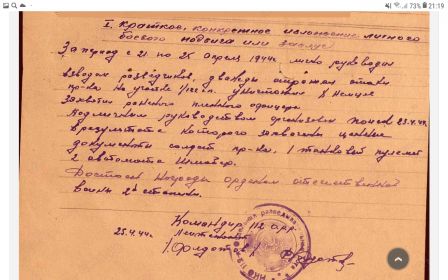 73% 21:19
I. Краткое, конкретное изложение личного
боевого подвига или заслуг
За период с 21 по 25 апреля 1944г. лично руководил
взводом разведчиков, дважды отражал атаки
пр-ка на участке уничтожил 8 немцев
захватил раненого пленного офицера
руководством организовал поиск 23.4.44
в результате которого захвачены ценные
документы солдат пр-ка, 1 танковый пулемет
2 автомата
Достоин награды орденом отечественной
войны 2й степени.
Командир 112 орр
25.4.44. Лейтенант